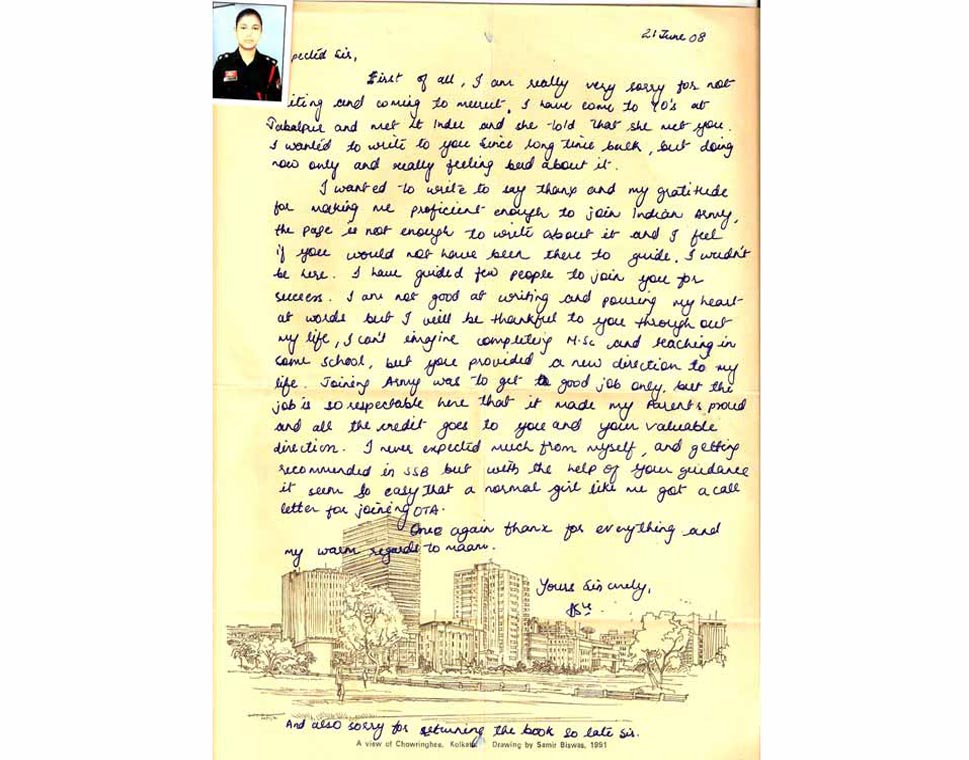 21 June 08
pected Sir,
First of all, I am really very sorry for not
iting and coming to meerut. I have come to YO's at
Jabalpur and met Lt Indu and she told that she met you.
I wanted to write to you since long time back, but doing
now only and really feeling bad about it.
I wanted to write to say thanx and my gratitude
for making me proficient enough to join Indian Army,
the page is not enough to write about it and I feel
if you would not have been there to guide, I wuldn't
be here. I have guided few people to join you for
success. I am not good at writing and pouring my heart
at words but I will be thankful to you through out
my life, I can't imagine completing M.Sc and teaching in
some school, but you provided a new direction to my
life. Joining Army was to get a good job only, but the
job is so respectable here that it made my Parents proud
and all the credit goes to you and your valuable
direction. I never expected much from myself, and getting
recommended in SSB but with the help of your guidance
it seem so easy that a normal girl like me got a call
letter for joining OTA.
Once again thanx for everything and
my warm regards to maam.
Yours Sincerely,
And also sorry for returning the book so late Sir.
A view of Chowringhee, Kolkata Drawing by Samir Biswas, 1991